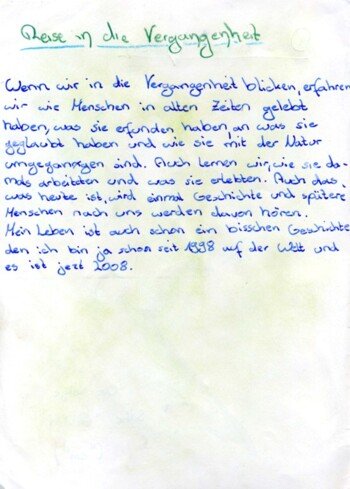 Reise in die Vergangenheit
Wenn wir in die Vergangenheit blicken, erfahren
wir wie Menschen in alten Zeiten gelebt
haben, was sie erfunden haben, an was sie
geglaubt haben und wie sie mit der Natur
umgegangen sind. Auch lernen wir, wie sie da-
mals arbeiteten und was sie erlebten. Auch das,
was heute ist, wird einmal Geschichte und spätere
Menschen nach uns werden davon hören.
Mein Leben ist auch schon ein bisschen Geschichte
den ich bin ja schon seit 1998 auf der Welt und
es ist jezt 2008.